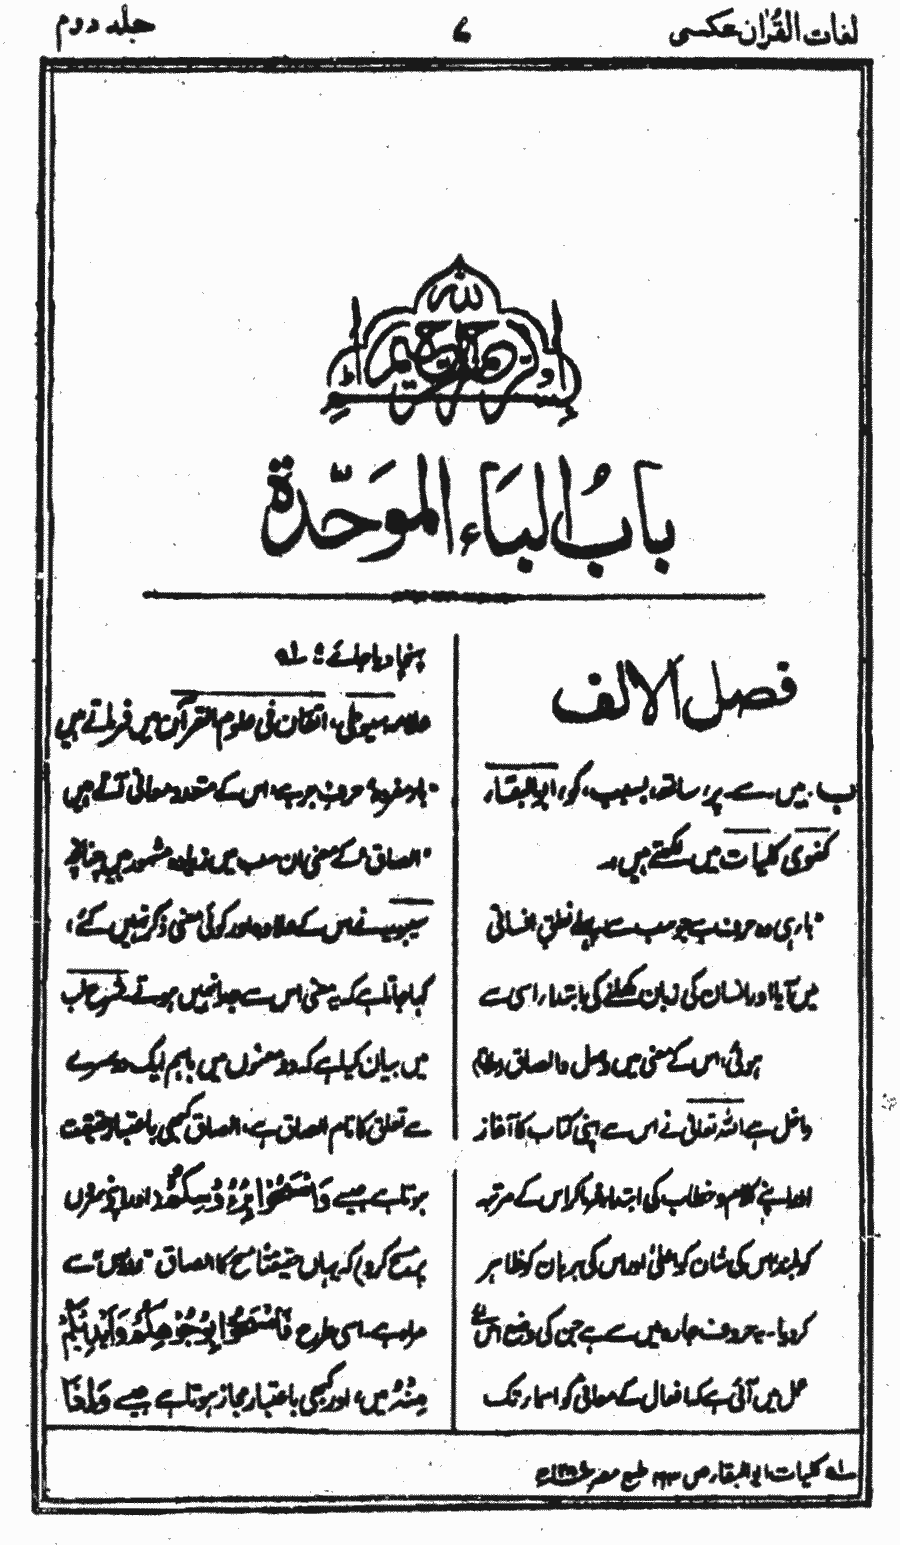 لغات القرآن عکسی
۷
جلد دوم
بسم اللہ الرحمن الرحیم
بابُ الباَء الموَحّدة
فصل الالف
ب۔ میں۔ سے۔ پر، ساتھ، بسبب، کو، ابوالبقار
کفوی کلیات میں لکھتے ہیں :۔
"باری وہ حرف ہے جو سب سے پہلے نطقِ انسانی
میں آیا اور انسان کی زبان کھلنے کی ابتداء اسی سے
ہوئی، اس کے معنی میں وصل والصاق (ملانا)
داخل ہے اللہ تعالیٰ نے اس سے اپنی کتاب کا آغاز
اور اپنے کلام و خطاب کی ابتداء فرماکر اس کے مرتبہ
کو بلند، اس کی شان کو اعلیٰ اور اس کی برہان کو ظاہر
کردیا۔ یہ حروف جارہ میں سے ہے جن کی وضع اس لئے
عمل میں آئی ہے کہ افعال کے معانی کو اسماء تک
پہنچا دیا جائے؛ لہ
علامہ سیوطی، اتقان فی علوم القرآن میں فرماتے ہیں
"باء مفردہ، حرف جر ہے، اس کے متعدد معانی آتے ہیں
"الصاق" کے معنی ان سب میں زیادہ مشہور ہیں چنانچہ
سیبویہ نے اس کے علاوہ اور کوئی معنی ذکر نہیں کئے،
کہا جاتا ہے کہ یہ معنی اس سے جدا نہیں ہوتے۔ شرح لب
میں بیان کیا ہے کہ دو معنوں میں باہم ایک دوسرے
سے تعلق کا نام الصاق ہے، الصاق کبھی باعتبار حقیقت
ہوتا ہے جیسے وَامْسَحُوْا بِرُءُوْسِكُمْ (اور اپنے سروں
پر مسح کرو) کہ یہاں حقیقتاً مسح کا الصاق "راس" سے
مراد ہے، اسی طرح فَامْسَحُوْا بِوُجُوْهِكُمْ وَاَيْدِيْكُمْ
مِنْهُ میں، اور کبھی باعتبار مجاز ہوتا ہے جیسے وَاِذَا
لہ کلیات ابوالبقار ص طبع مصر